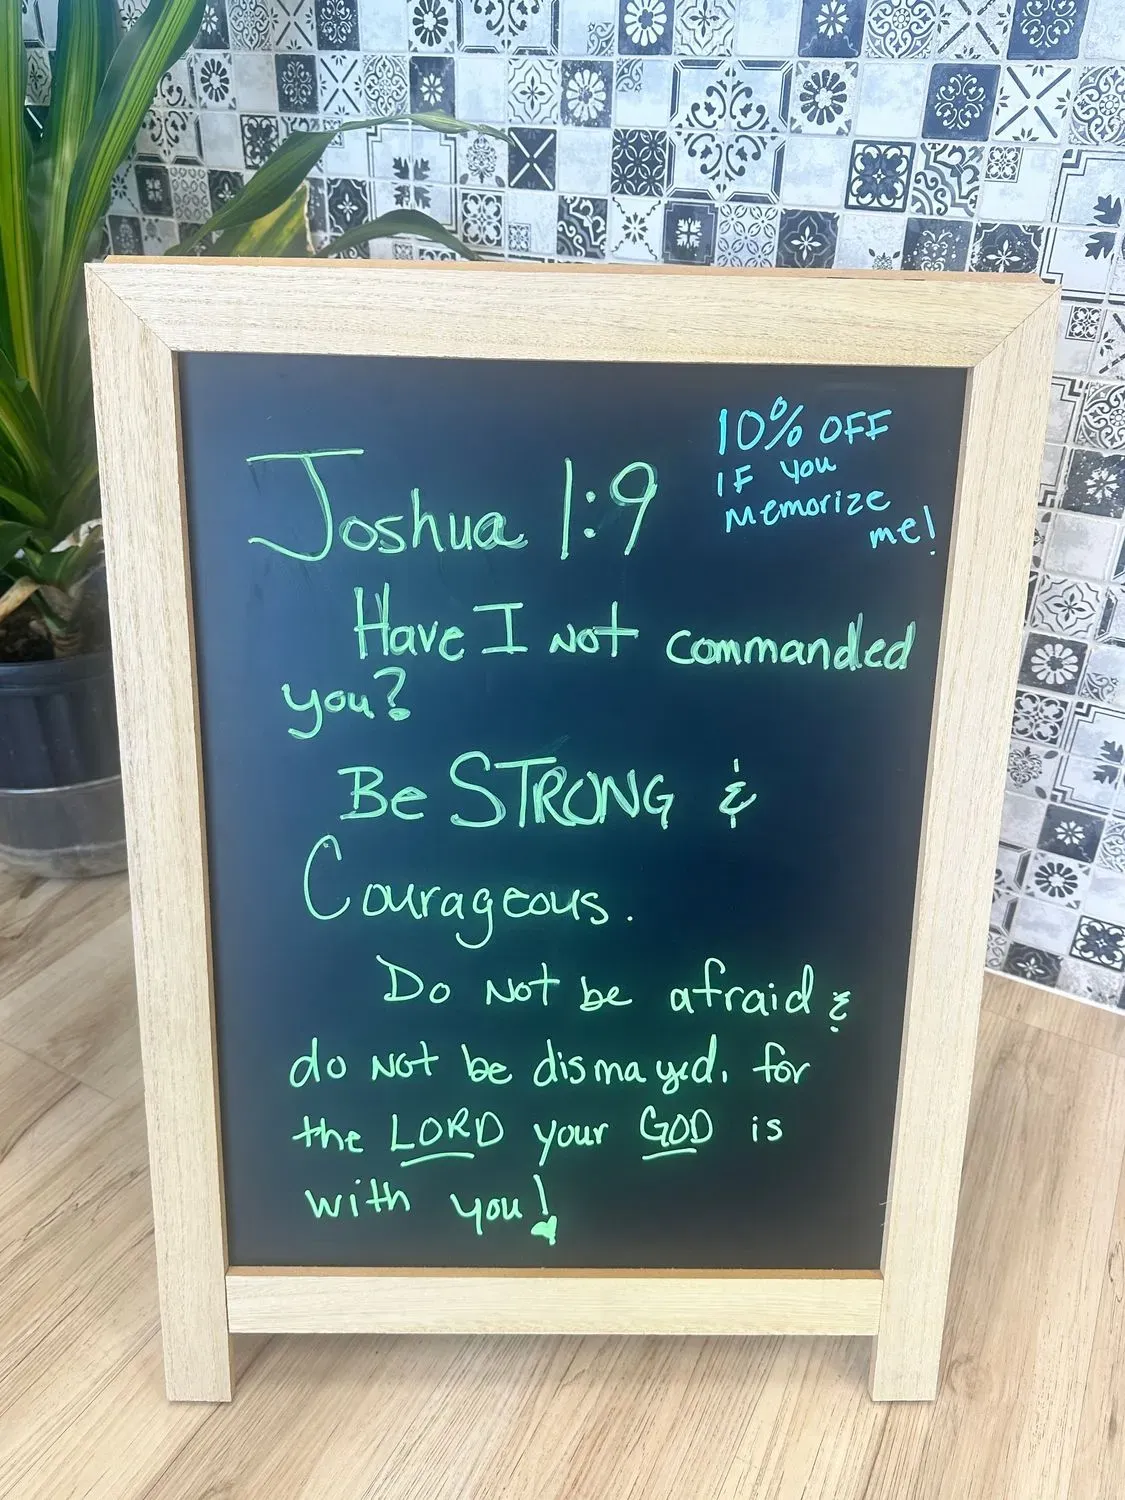 10% OFF
IF you
memorize
me!
Joshua 1:9
Have I not commanded
you?
Be STRONG &
Courageous.
Do not be afraid &
do not be dismayed, for
the LORD your GOD is
with you!